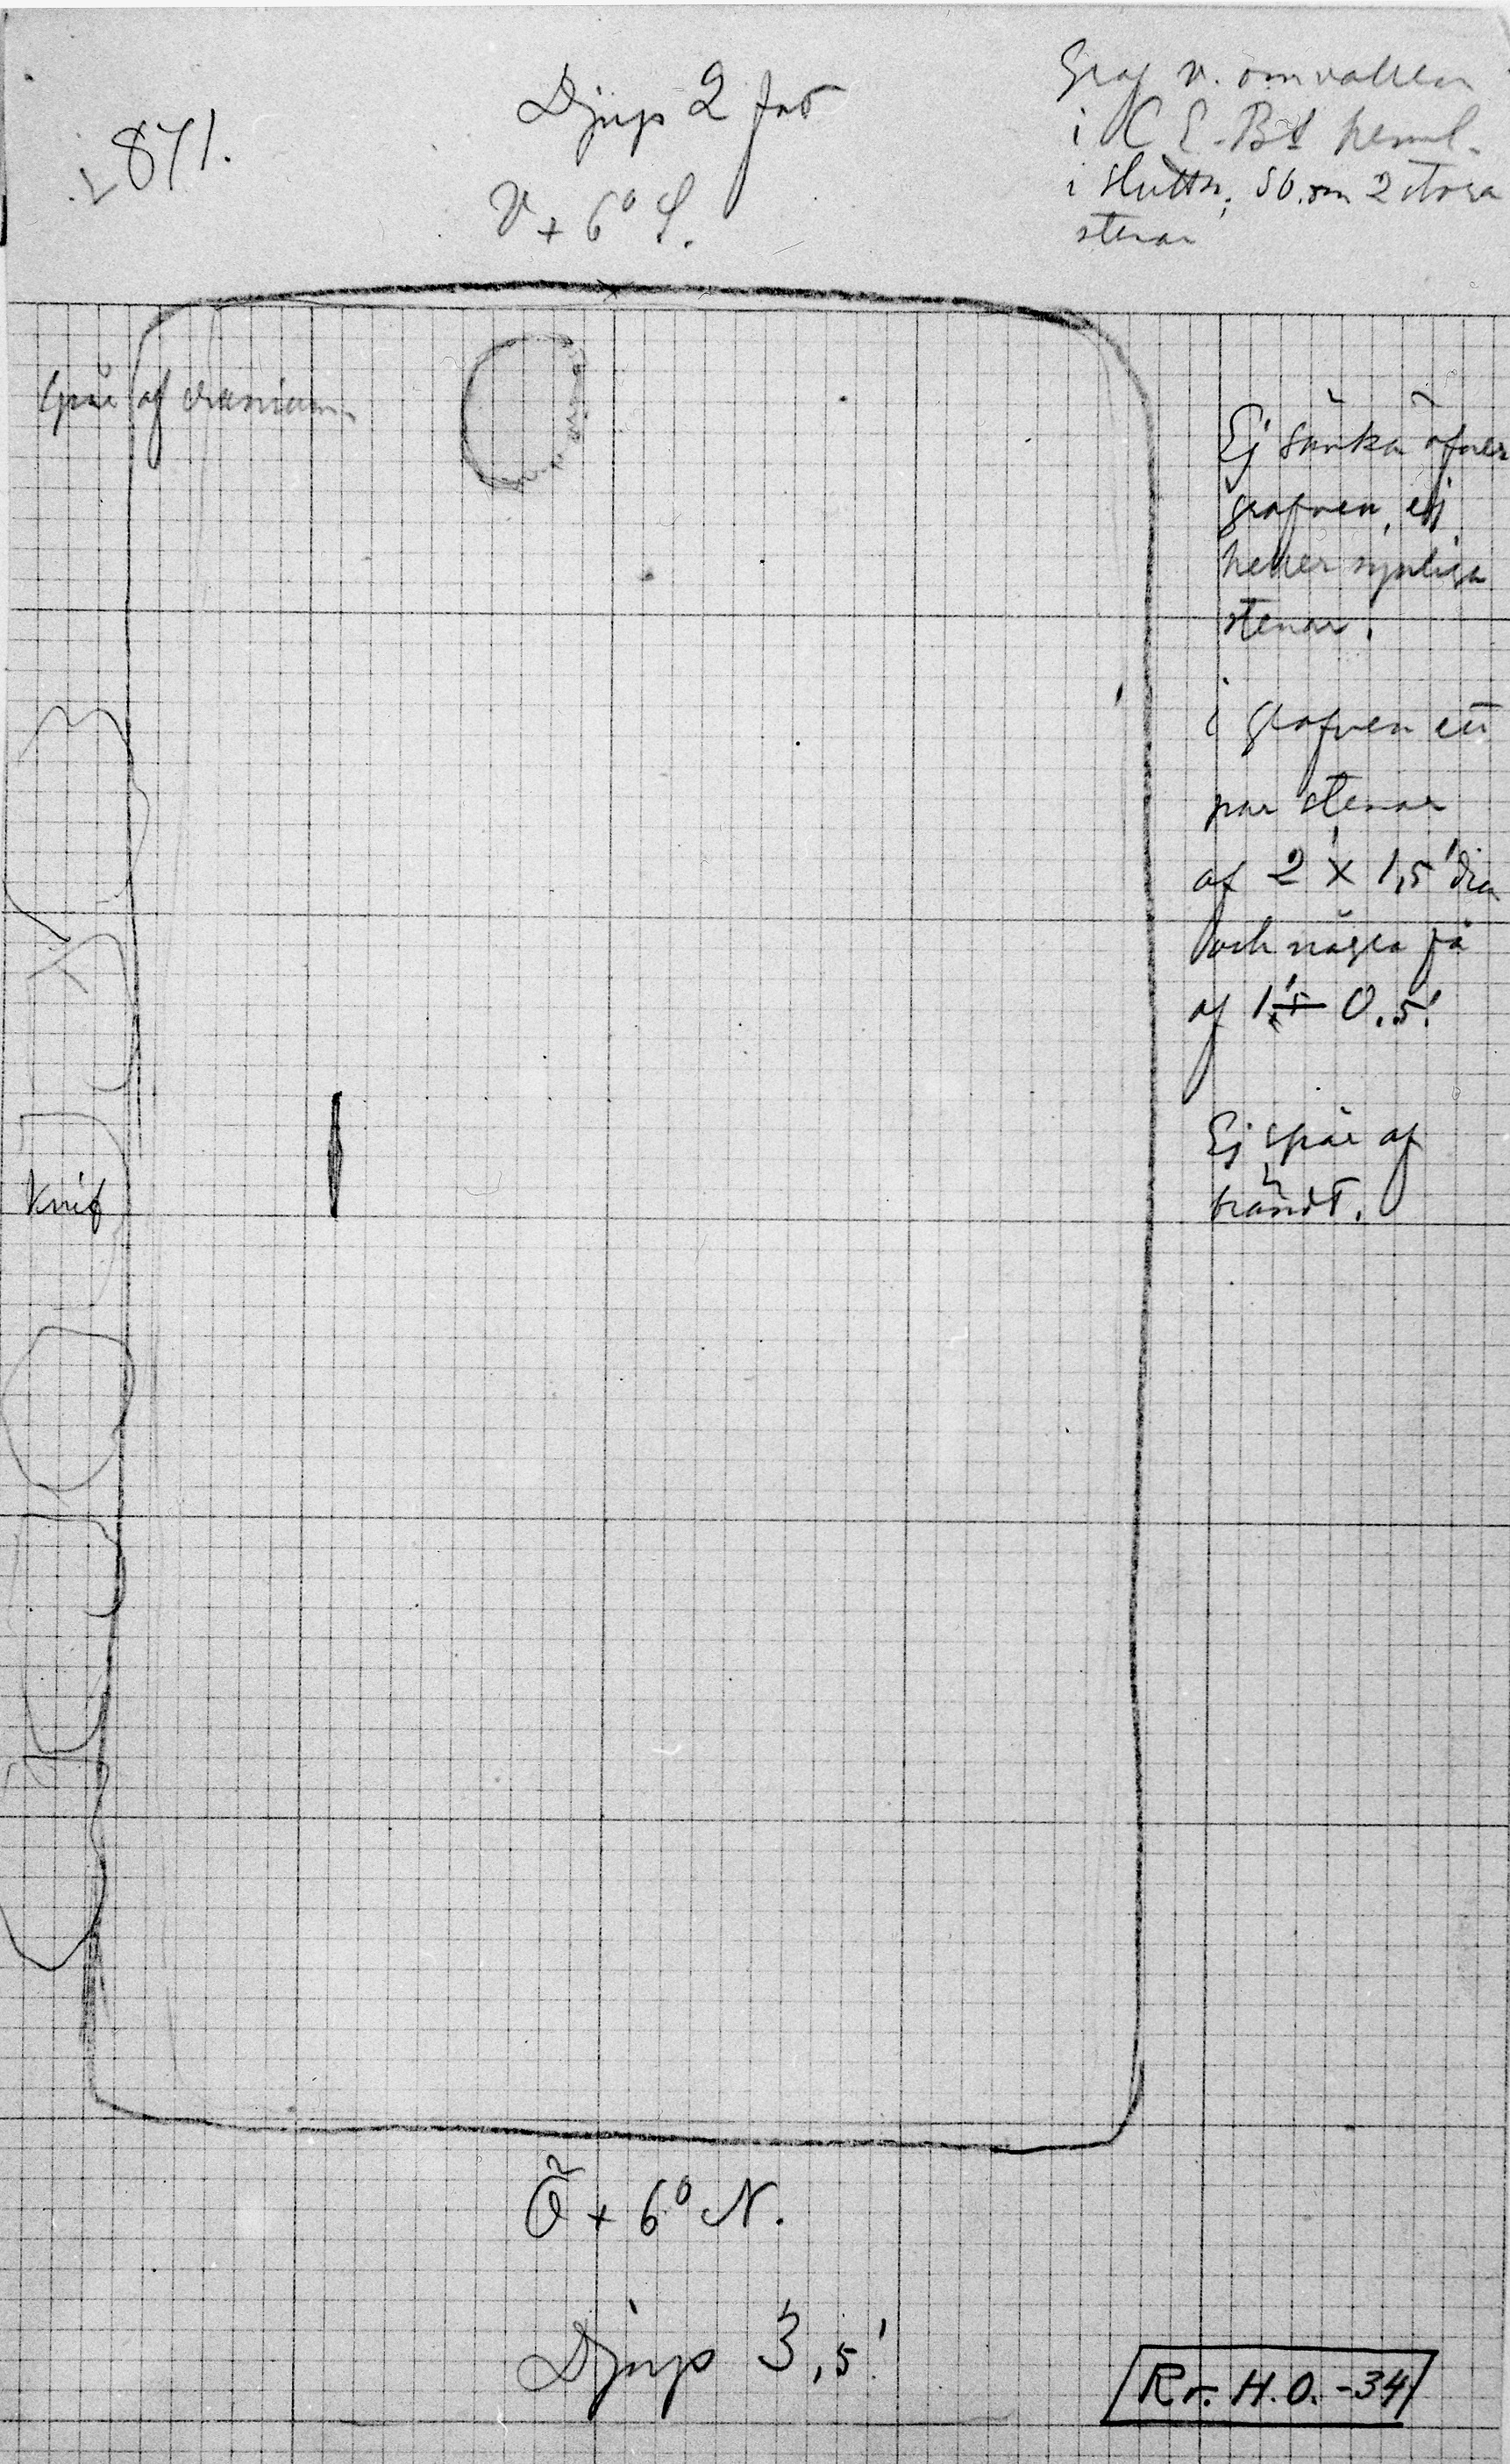 871.
Djup 2 fot
V + 6° S.
Graf n. om vallen
i C E. Bs heml.
i sluttn. SO. om 2 stora
stenar
Spår af cranium
Ej sänka öfver
grafven, ej
heller synliga
stenar.
i grafven ett
par stenar
af 2' x 1,5' dia
och några få
af 1' 0.5'
Knif
Ej spår af
brändt.
Ö + 6° N.
Djup 3,5'
Rr. H.O. -34